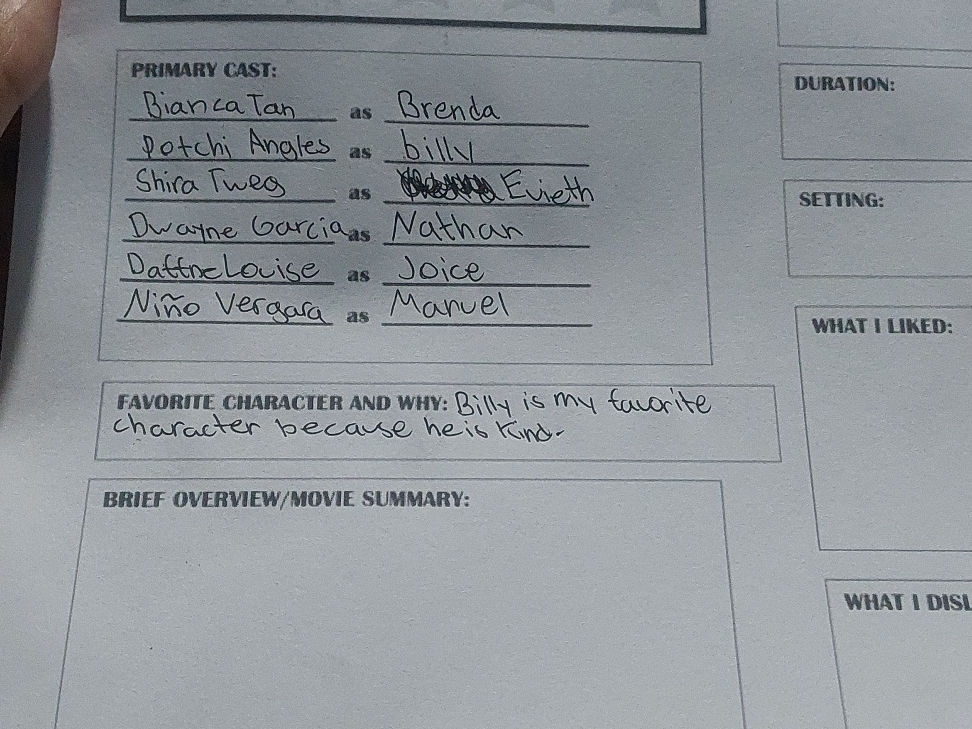 PRIMARY CAST:
Bianca Tan as Brenda
Potchi Angles as billy
Shira Tweg as Evieth
Dwayne Garcia as Nathan
Daffne Louise as Joice
Niño Vergara as Manuel
FAVORITE CHARACTER AND WHY: Billy is my favorite
character because he is kind.
BRIEF OVERVIEW/MOVIE SUMMARY:
DURATION:
SETTING:
WHAT I LIKED:
WHAT I DISL